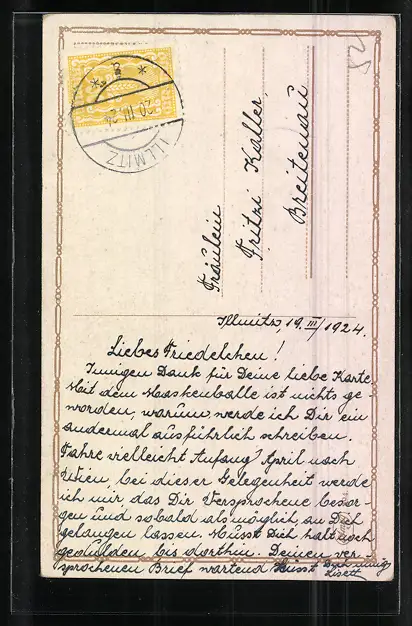 52
ILLMITZ
20.III.24
* a *
Fräulein
Fritzi Kaller
Breitenau
Illmitz 19. III/1924.
Liebes Friedelchen!
Innigen Dank für Deine liebe Karte.
Mit dem Maskenballe ist nichts ge-
worden, warum, werde ich Dir ein
andermal ausführlich schreiben.
Fahre vielleicht Anfang April nach
Wien, bei dieser Gelegenheit werde
ich mir das Dir Versprochene besor-
gen und sobald als möglich an Dich
gelangen lassen. Musst Dich halt noch
gedulden bis dorthin. Deinen ver-
sprochenen Brief wartend küsst Dich innig
Lisett